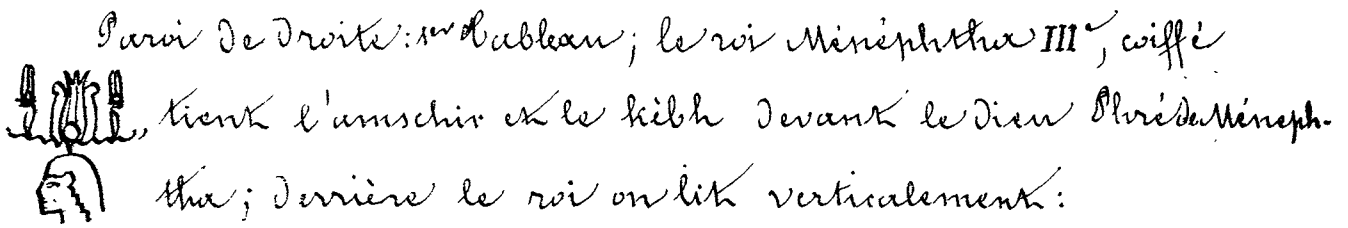 Paroi de droite: 1er tableau; le roi Ménéphtha IIIe, coiffé
tient l'amschir et le kèbh devant le Dieu Phré de Méneph-
tha; derrière le roi on lit verticalement: